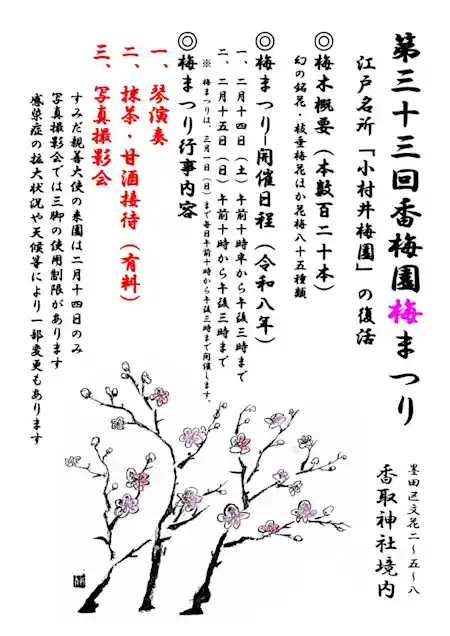 第三十三回香梅園梅まつり
江戸名所「小村井梅園」の復活
墨田区文花二～五～八
香取神社境内
◎梅木概要（本数百二十本）
幻の銘花・枝垂梅花ほか花梅八十五種類
◎梅まつり開催日程（令和八年）
一、二月十四日（土）午前十時半から午後三時まで
二、二月十五日（日）午前十時から午後三時まで
※ 梅まつりは、三月一日（日）まで毎日午前十時から午後三時まで開催します。
◎梅まつり行事内容
一、琴演奏
二、抹茶・甘酒接待（有料）
三、写真撮影会
すみだ親善大使の来園は二月十四日のみ
写真撮影会では三脚の使用制限があります
感染症の拡大状況や天候等により一部変更もあります